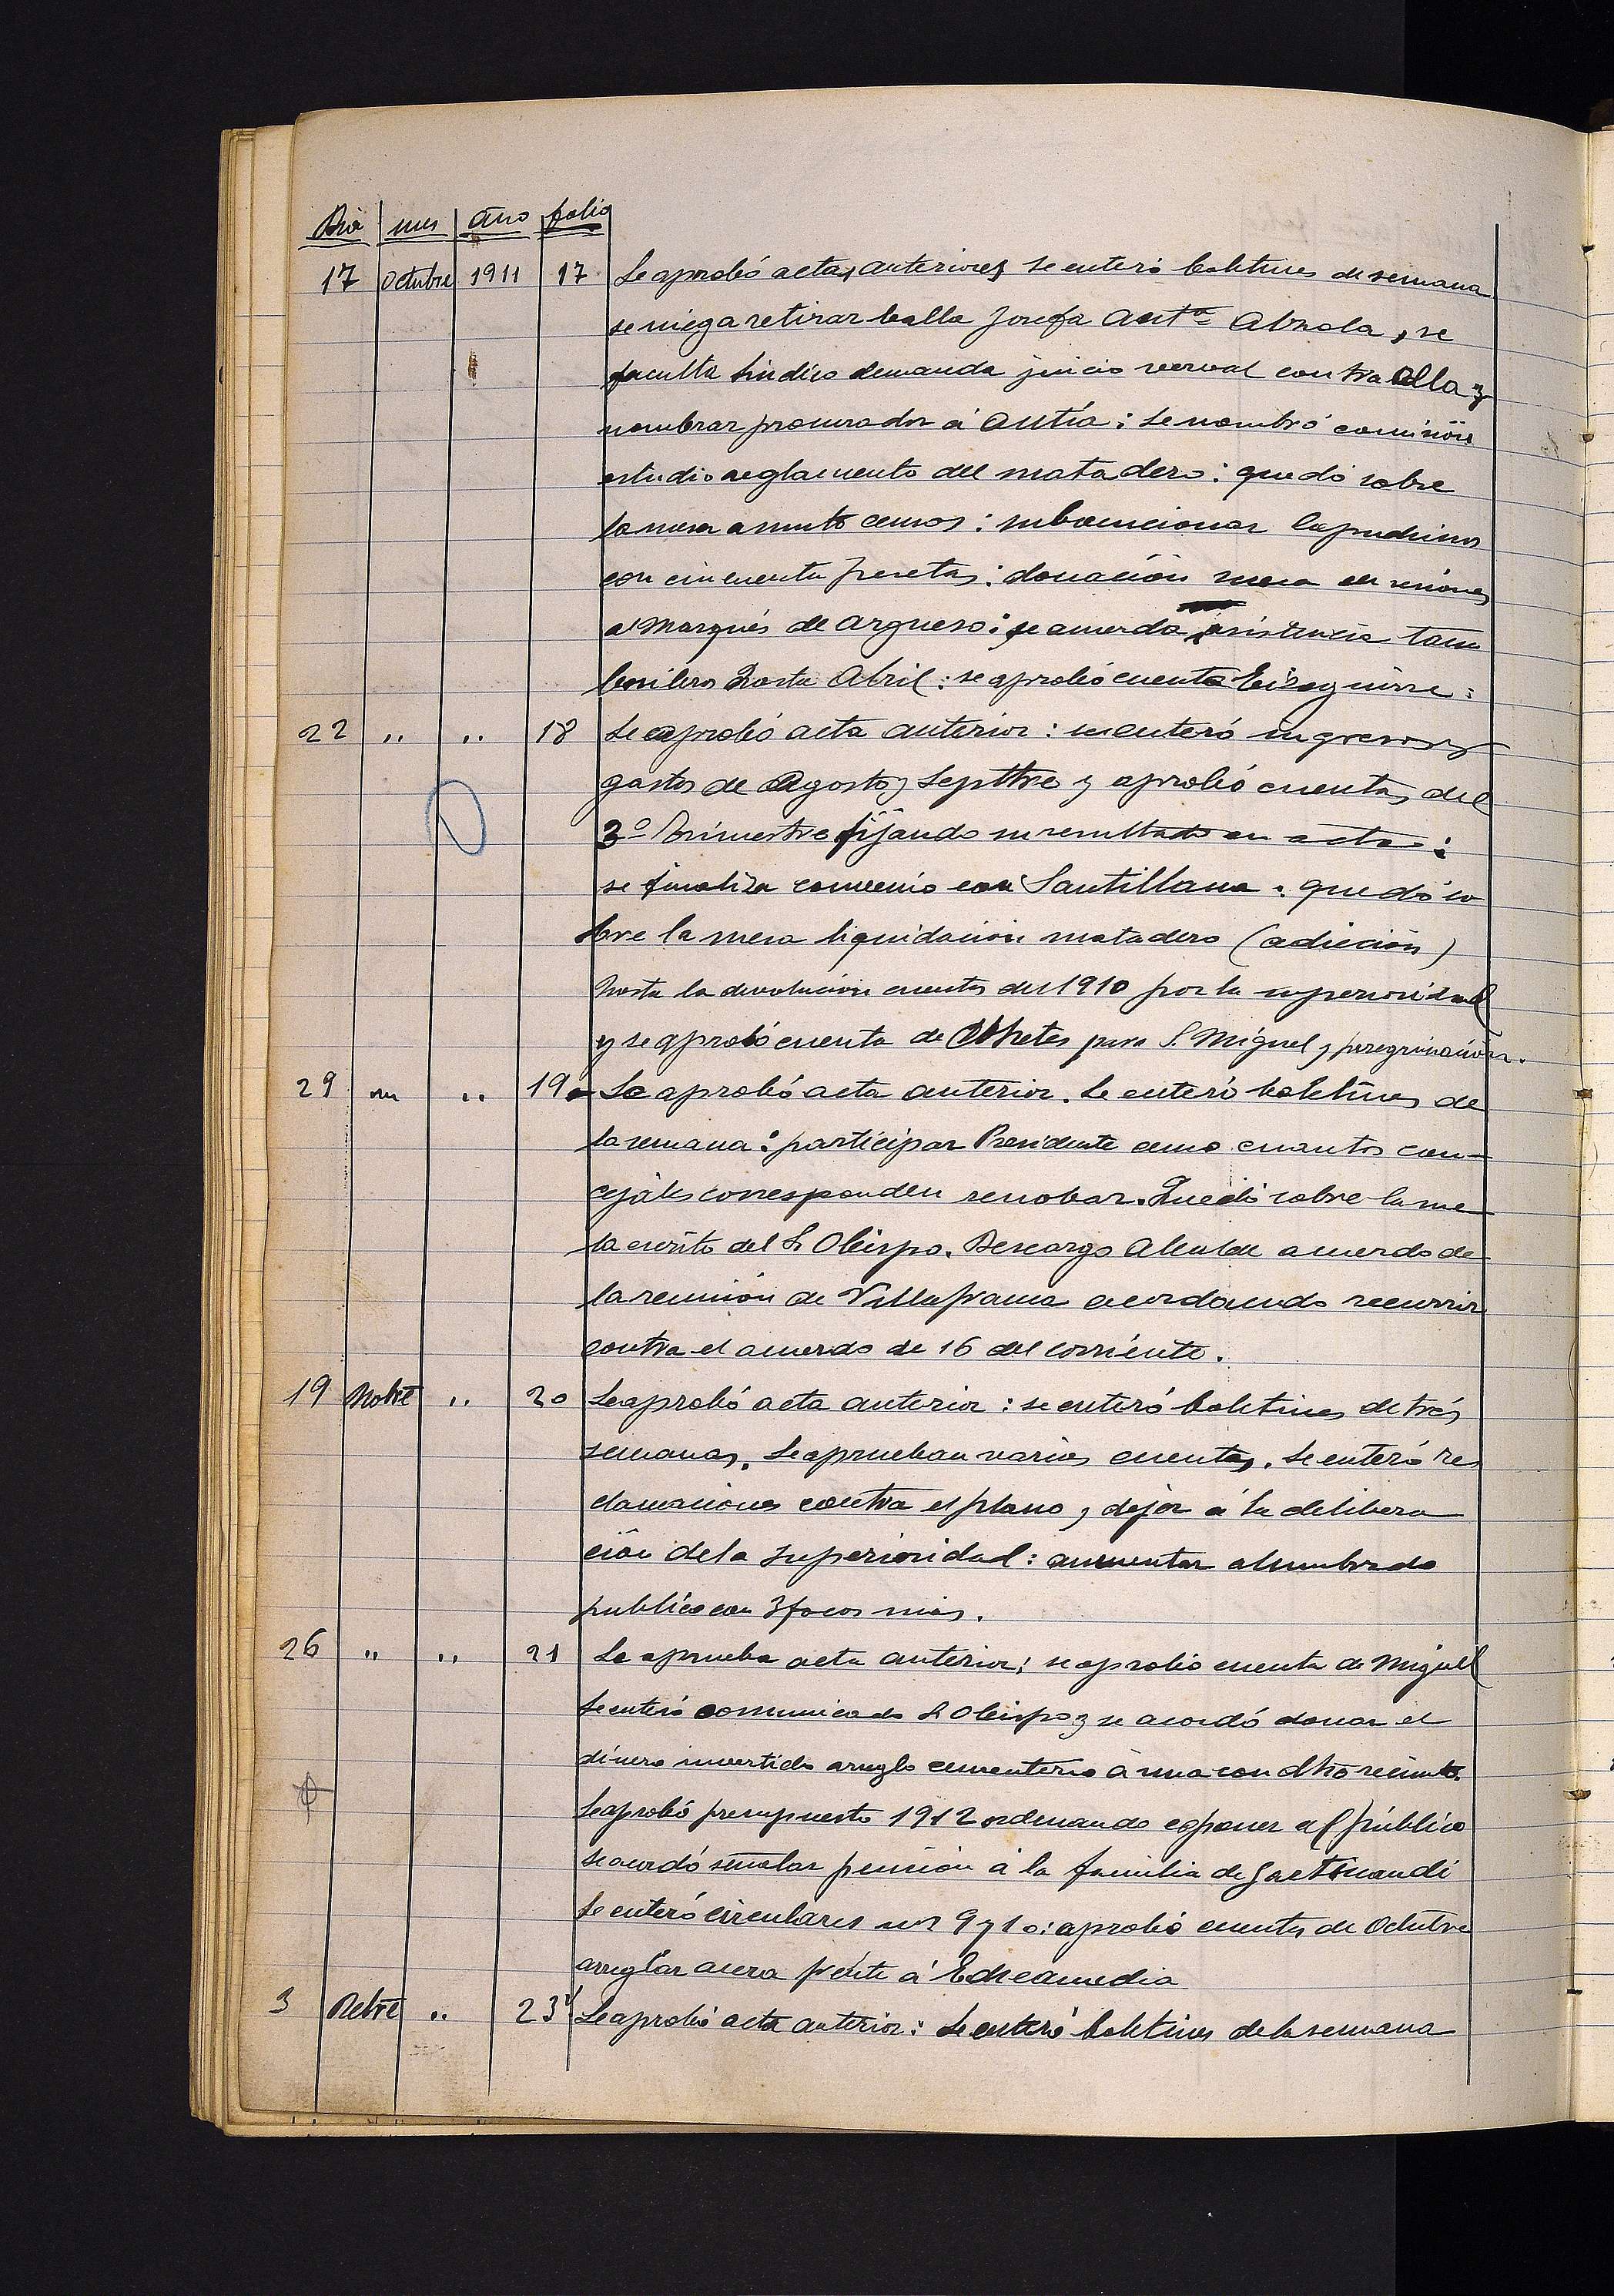 Dia mes año folio
17 Octubre 1911 17 Se aprobó actas anteriores se enteró boletines de semana
se niega retirar balla Josefa Antª Abzola, se
faculta Sindico demanda juicio verval contra ella y
nombrar procurador á Antía: Se nombró comision
estudio reglamento del matadero: quedó sobre
la mesa asunto censos: subvencionar
con cincuenta pesetas: donación mesa de
al Marqués de Argueso: se acuerda asistencia tam
borilero hasta Abril: se aprobó cuenta Eizaguirre:
22 " " 18 Se aprobó acta anterior: se enteró ingresos y
gastos de Agosto y Septtre y aprobó cuentas del
3º Trimestre fijando su resultado en acta:
se finaliza convenio con Santillana: quedó so
bre la mesa liquidación matadero (adición)
hasta la devolución cuentas del 1910 por la superioridad
y se aprobó cuenta de Cohetes para S. Miguel y peregrinación.
29 " " 19 Se aprobó acta anterior. Se enteró boletines de
la semana: participar Presidente censo cuantos con-
cejales corresponden renobar. Quedó sobre la me
sa escrito del Sr Obispo. Descargo Alcalde acuerdo de
la reunión de Villafranca acordando recurrir
contra el acuerdo de 16 del corriente.
19 Nobre " 20 Se aprobó acta anterior: se enteró boletines de trés
semanas. Se aprueban varias cuentas. Se enteró re
clamaciones contra el plano y dejar á la delibera
ción de la Superioridad: aumentar alumbrado
publico con 3 focos mas.
26 " " 21 Se aprueba acta anterior; se aprobó cuenta de Miguel
Se enteró comunicado Sr Obispo y se acordó donar el
dinero invertido arreglo cementerio á una con dho recinto.
Se aprobó presupuesto 1912 ordenando esponer al público
se acordó señalar pensión á la familia de
Se enteró circulares nos 9 y 10: aprobó cuentas de Octubre
arreglar acera frente á Echeamedia
3 Debre " 23 Se aprobó acta anterior: Se enteró boletines de la semana